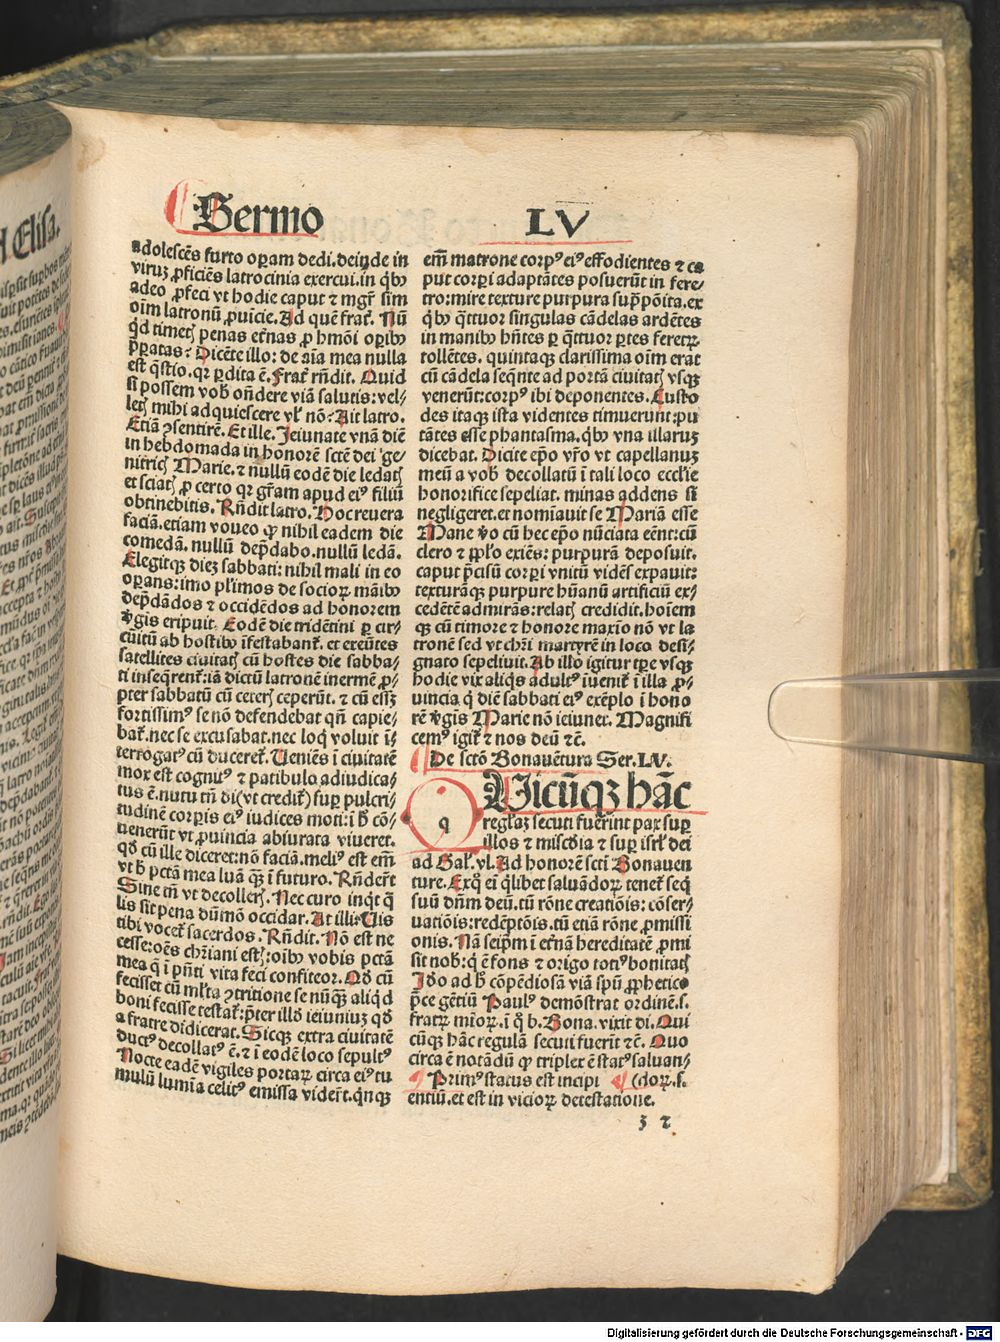 Sermo LV
adolescẽs furto operam dedi. deinde in
virũ ꝓficiẽs latrocinia exercui. in q̃bꝰ
adeo ꝓfeci vt hodie caput ⁊ mgr̃ sim
oĩm latronũ ꝓuicie. Ad quẽ frat̃. Nũ
q̃d timetꝭ penas et̃nas ꝓ hmõi oꝑibꝰ
p̃paratas? Dicẽte illo: de aĩa mea nulla
est q̃stio. qꝛ ꝑdita ẽ. Frat̃ rñdit. Quid
si possem vob̃ oñdere viã salutis: vel⸗
letꝭ mihi adquiescere vl̃ nõ? Ait latro.
Etiã ↄsentirẽ. Et ille. Jeiunate vnã diẽ
in hebdomada in honorẽ sctẽ dei ge⸗
nitricꝭ Marie. ⁊ nullũ eodẽ die ledatꝭ
et sciatꝭ ꝓ certo qꝛ gr̃am apud eiꝰ filiũ
obtinebitis. Rñdit latro. Hoc reuera
faciã. etiam voueo ꝙ nihil eadem die
comedã. nullũ dep̃dabo. nullũ ledã.
Elegitqꝫ diẽ sabbati: nihil mali in eo
oꝑans: imo pl̃imos de socioꝝ mãibꝰ
dep̃dãdos ⁊ occidẽdos ad honorem
v̾gis eripuit. Eodẽ die tridẽtini ꝑ cir⸗
cuitũ ab hostibꝰ ĩfestabant̃. et exeũtes
satellites ciuitatꝭ cũ hostes die sabba⸗
ti inseq̃rent̃: iã dictũ latronẽ inermẽ ꝓ⸗
pter sabbatũ cũ ceterꝭ ceperũt. ⁊ cũ eẽt
fortissimꝰ se nõ defendebat qñ capie⸗
bat̃. nec se excusabat. nec loq̃ voluit ĩ⸗
terrogatꝰ cũ duceret̃. Veniẽs ĩ ciuitatẽ
mox est cognitꝰ ⁊ patibulo adiudica⸗
tus ẽ. nutu tñ di(vt credit̃) suꝑ pulcri⸗
tudinẽ corꝑis eiꝰ iudices moti: ĩ h̃ cõ⸗
uenerũt vt ꝓuincia abiurata viueret.
Qð cũ ille diceret: nõ faciã. meliꝰ est em̃
vt h̃ pctã mea luã q̃ꝫ ĩ futuro. Rñder̃t
Sine cm̃ vt decollerꝭ. Nec curo inq̃t q̃
lis sit pena dũmõ occidar. At illi: Uis
tibi vocet̃ sacerdos. Rñdit. Nõ est ne
cesse: oẽs chr̃iani estꝭ: oĩbꝰ vobis pctã
mea q̃ ĩ pñti vita feci confiteor. Qð cũ
fecisset cũ ml̃ta ↄtritione se nũq̃ꝫ aliq̃d
boni fecisse testat̃: p̃ter illð ieiuniuꝫ qð
a fratre didicerat. Sicqꝫ extra ciuitatẽ
ductꝰ decollatꝰ ẽ. ⁊ ĩ eodẽ loco sepultꝰ
Nocte eadẽ vigiles portaꝝ circa eiꝰ tu
mulũ lumĩa celitꝰ emissa vider̃t. q̃nqꝫ
em̃ matrone corpꝰ eiꝰ effodientes ⁊ ca
put corꝑi adaptãtes posuerũt in fere⸗
tro: mire texture purpura sup̃põita. ex
q̃bꝰ q̃ttuor singulas cãdelas ardẽtes
in manibꝰ hñtes ꝑ q̃ttuor ꝑtes feretꝝ
tollẽtes. quintaqꝫ clarissima oĩm erat
cũ cãdela seq̃nte ad portã ciuitatꝭ vsqꝫ
venerũt: corpꝰ ibi deponentes. Custo
des itaqꝫ ista videntes timuerunt: pu
tãtes esse phantasma. q̃bꝰ vna illarum
dicebat. Dicite ep̃o vr̃o vt capellanuꝫ
meũ a vob̃ decollatũ ĩ tali loco eccl̃ie
honorifice sepeliat. minas addens si
negligeret. et nomĩauit se Mariã esse
Mane v̾o cũ hec ep̃o nũciata eẽnt: cũ
clero ⁊ ppl̃o exiẽs: purpurã deposuit.
caput p̃cisũ corꝑi vnitũ vidẽs expauit:
texturãqꝫ purpure hũanũ artificiũ ex⸗
cedẽtẽ admirãs: relatꝭ credidit. hoĩem
qꝫ cũ timore ⁊ honore maxĩo nõ vt la
tronẽ sed vt chr̃i martyrẽ in loco desi⸗
gnato sepeliuit. Ab illo igitur tꝑe vsqꝫ
hodie vix aliq̃s adultꝰ ĩuenit̃ ĩ illa ꝓ⸗
uincia q̃ diẽ sabbati eiꝰ exẽplo ĩ hono
rẽ v̾gis Marie nõ ieiunet. Magnifi
cemꝰ igit̃ ⁊ nos deũ ⁊c̃.
De sctõ Bonauẽtura Ser. LV.
q
Uicũqꝫ hãc
regl̃aꝫ secuti fuer̃int pax suꝑ
illos ⁊ mĩscðia ⁊ suꝑ isrl̃ dei
ad Gal̃. vl. Ad honorẽ sctĩ Bonauen
ture. Exq̃ ei q̃libet saluãdoꝝ tenet̃ seq̃
suũ dñm deũ. tũ rõne creatiõis: cõser⸗
uatiõis: redẽptõis. tũ etiã rõne ꝓmissi
onis. Nã seip̃m ĩ et̃nã hereditatẽ ꝓmi
sit nob̃: q̃ ẽ fons ⁊ origo totiꝰ bonitatꝭ
Jðo ad h̃ cõpẽdiosã viã spũ ꝓphetico
p̃ce gẽtiũ Paulꝰ demõstrat ordinẽ. s.
fratꝝ mĩoꝝ. ĩ q̃ b. Bona. vixit di. Qui
cũqꝫ hãc regulã secuti fuerĩt ⁊c̃. Quo
circa ẽ notãdũ ꝙ triplex ẽ statꝰ saluan⸗
Primꝰ status est incipi (doꝝ. s.
entiũ. et est in vicioꝝ detestatione.
ʒ ⁊
Digitalisierung gefördert durch die Deutsche Forschungsgemeinschaft - DFG